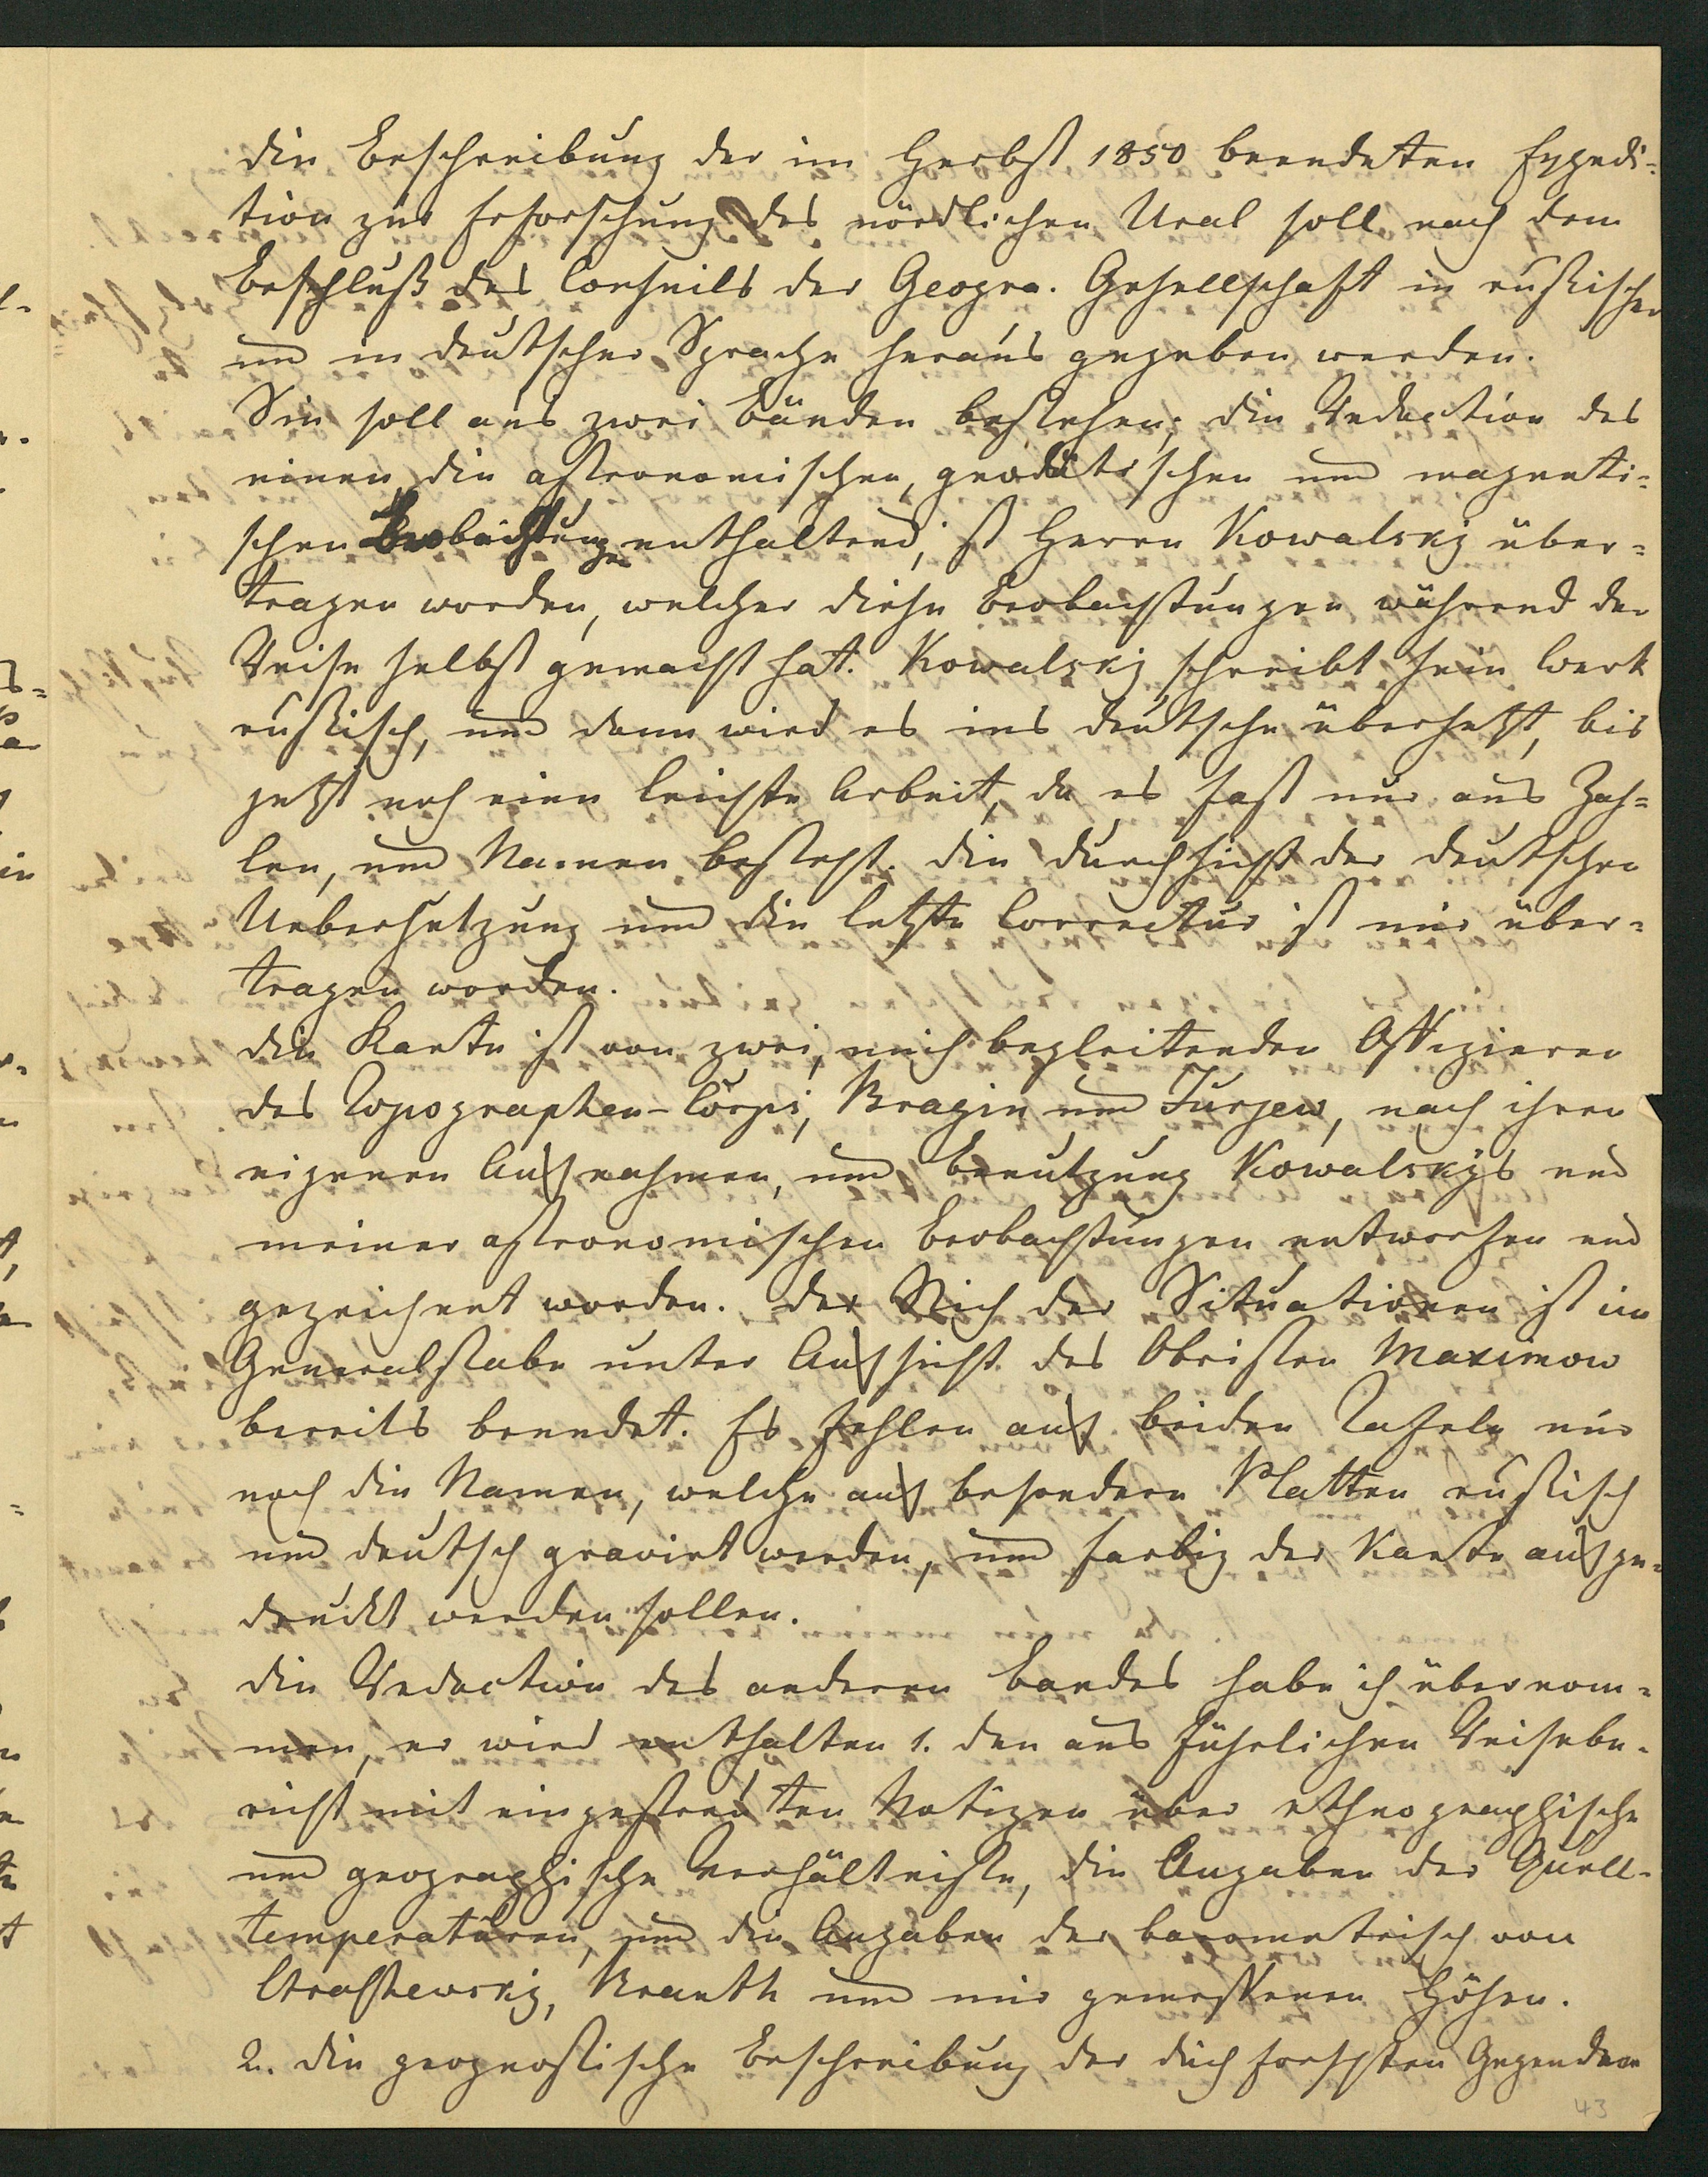 die Beschreibung der im Herbst 1850 beendeten Expedi-
tion zur Erforschung des nördlichen Ural soll nach dem
Beschluß des Conseils der Geogra. Gesellschaft in russischer
und in deutscher Sprache heraus gegeben werden.
Sie soll aus zwei Bänden bestehen; die Redaction des
einen, die astronomischen, geodätischen und magneti-
schen Beobachtungen enthaltend, ist Herrn Kowalskij über-
tragen worden, welcher diese Beobachtungen während der
Reise selbst gemacht hat. Kowalskij schreibt sein Werk
russisch, und dann wird es ins deutsche übersetzt, bis
jetzt noch eine leichte Arbeit, da es fast nur aus Zah-
len, und Namen besteht. die Durchsicht der deutschen
Uebersetzung und die letzte Correctur ist mir über-
tragen worden.
die Karte ist von zwei, mich begleitenden Offizieren
des Topographen-Corps, Bragin und Jurjew, nach ihren
eigenen Aufnahmen, und Benutzung Kowalskijs und
meiner astronomischen Beobachtungen entworfen und
gezeichnet worden. der Stich der Situationen ist im
Generalstabe unter Aufsicht des Obristen Maximow
bereits beendet. Es fehlen auf beiden Tafeln nur
noch die Namen, welche auf besondern Platten russisch
und deutsch gravirt werden, und farbig der Karte aufge-
druckt werden sollen.
die Redaction des anderen Bandes habe ich übernom-
men, er wird enthalten 1. den aus führlichen Reisebe-
richt mit eingestreuten Notizen über ethnographische
und geographische Verhältnisse, die Angaben der Quell-
temperaturen, und die Angaben der barometrisch von
Strashewskij, Branth und mir gemessenen Höhen.
2. die geognostische Beschreibung der durchforschten Gegenden
43